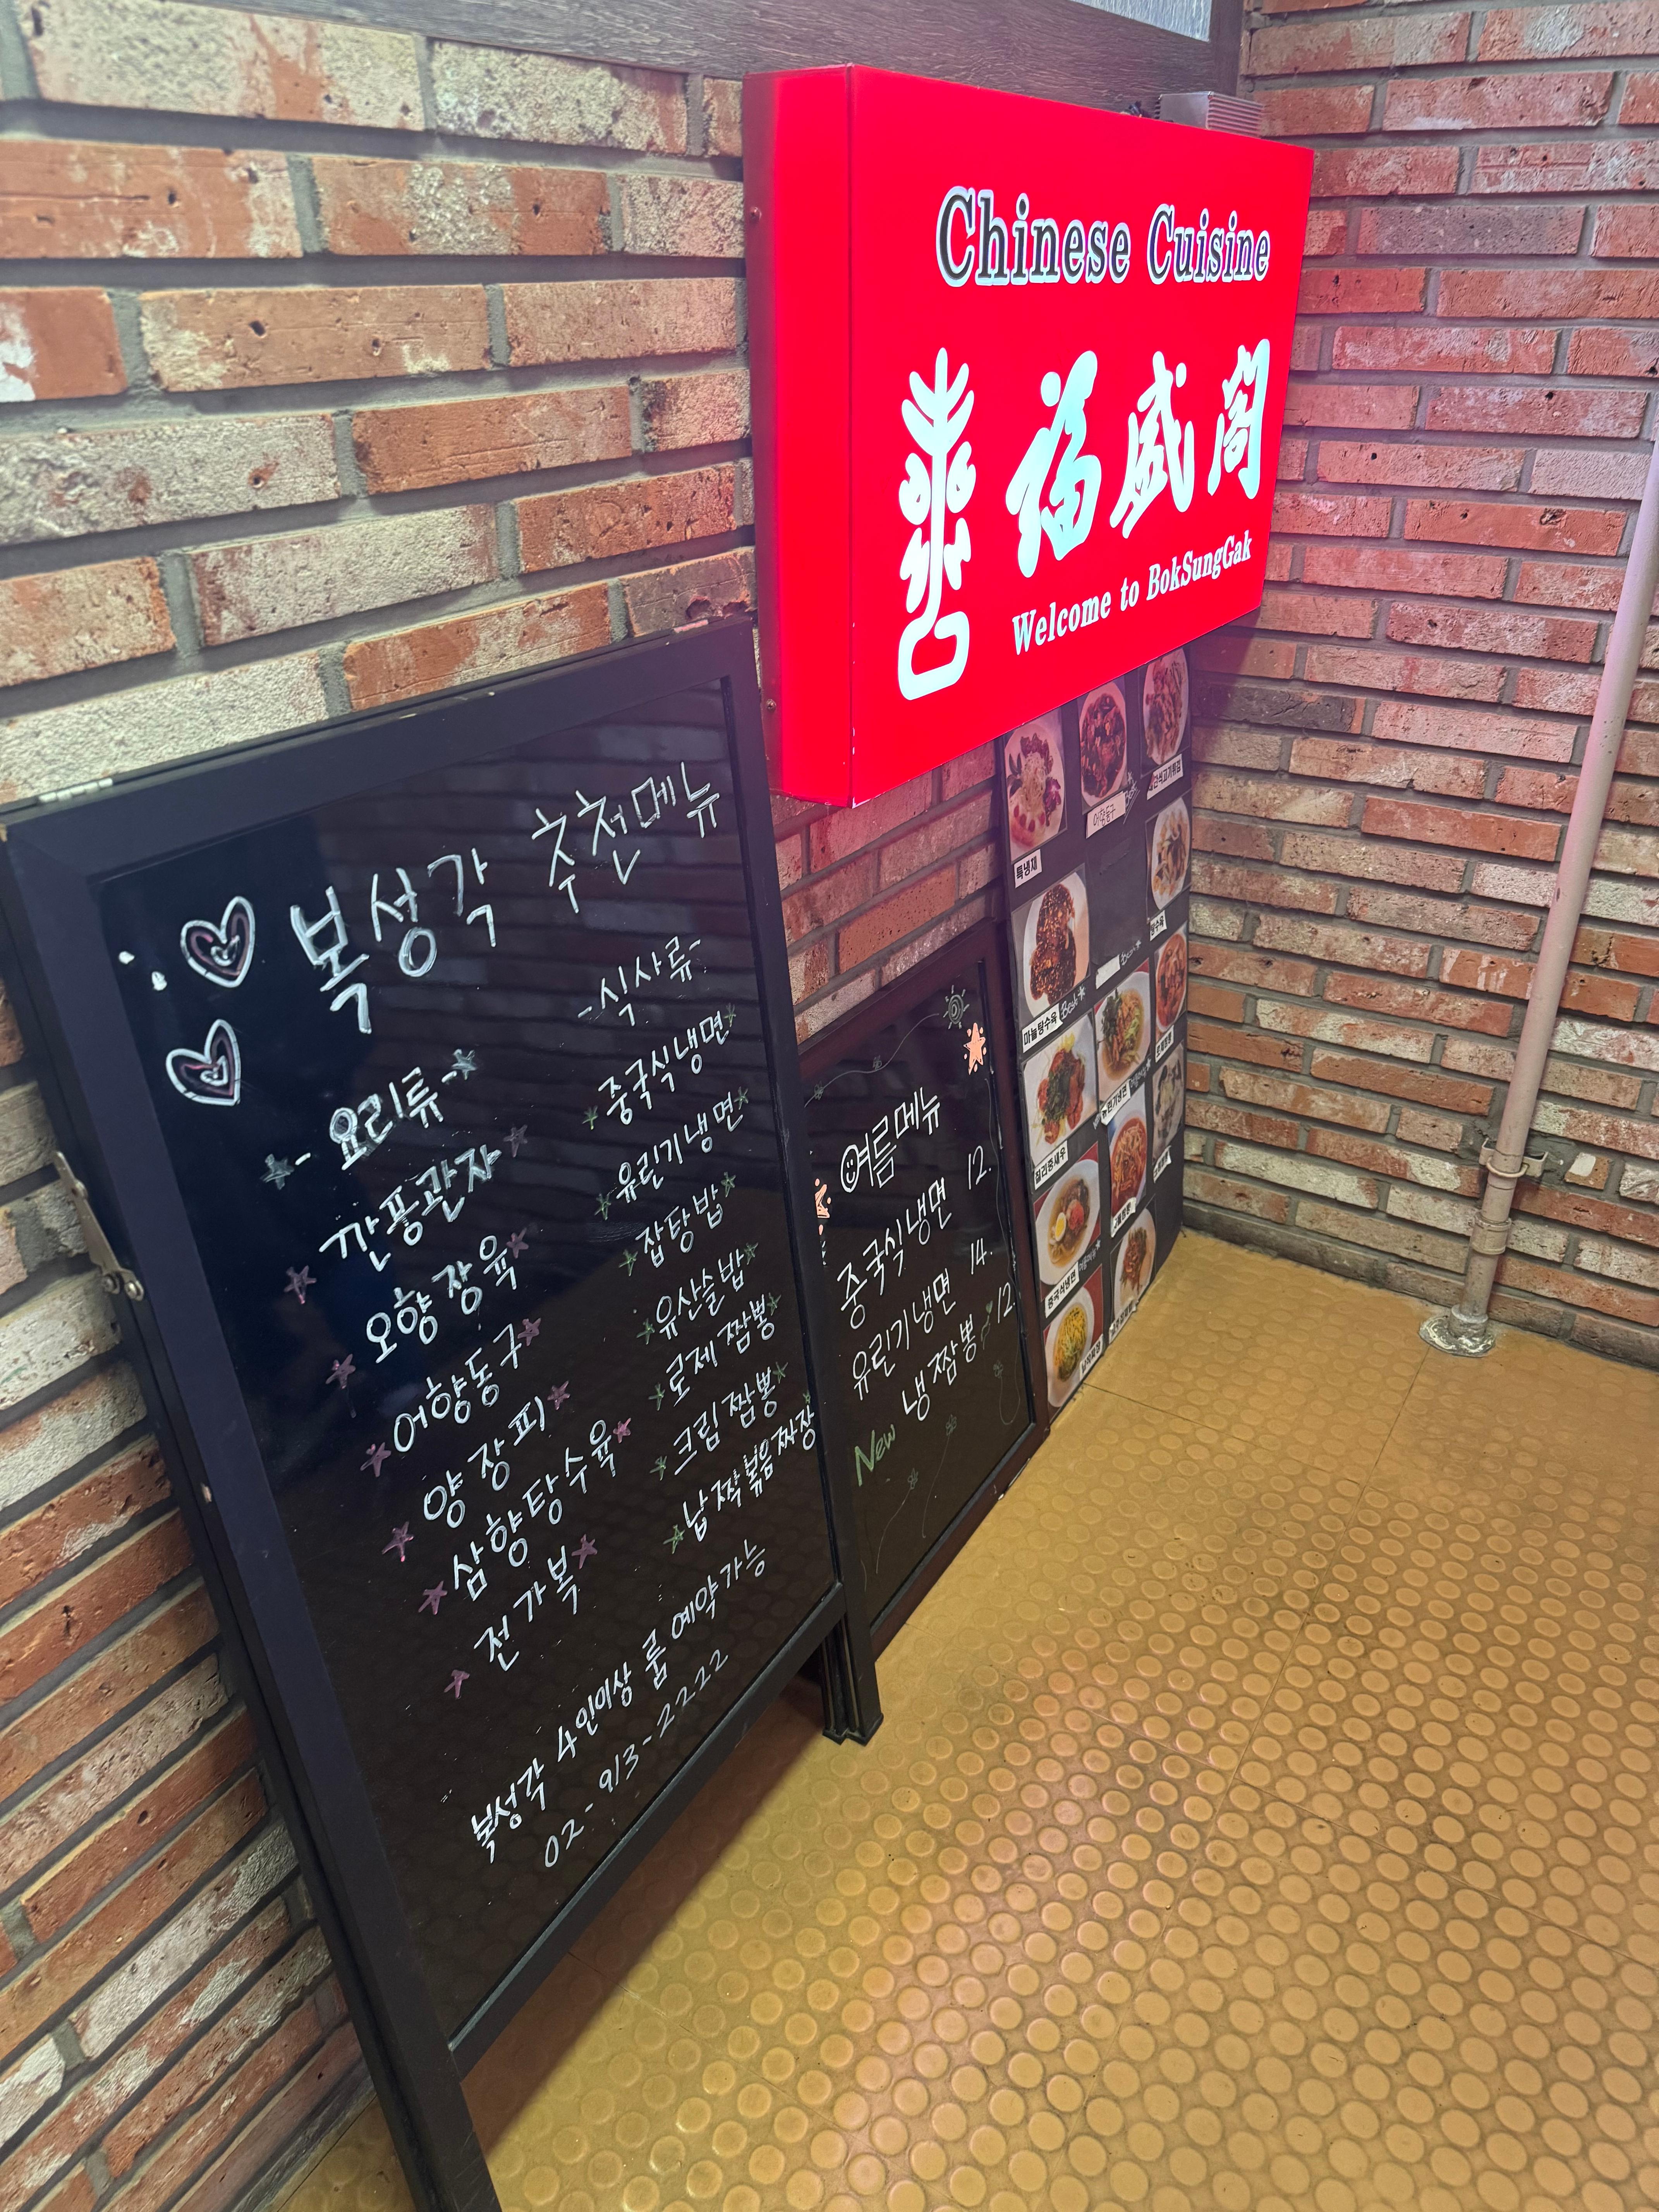 Chinese Cuisine
福盛阁
Welcome to BokSungGak
복성각 추천메뉴
- 요리류 -
깐풍관자
오향장육
어향동구
양장피
삼향탕수육
전가복
- 식사류 -
중국식냉면
유린기냉면
잡탕밥
유산슬밥
로제짬뽕
크림짬뽕
납짝볶음짜장
복성각 4인이상 룸 예약가능
02-913-2222
여름메뉴
중국식냉면 12.
유린기냉면 14.
New 냉짬뽕 12.
특냉채
어향동구 Best
마늘탕수육 Best
중국식냉면